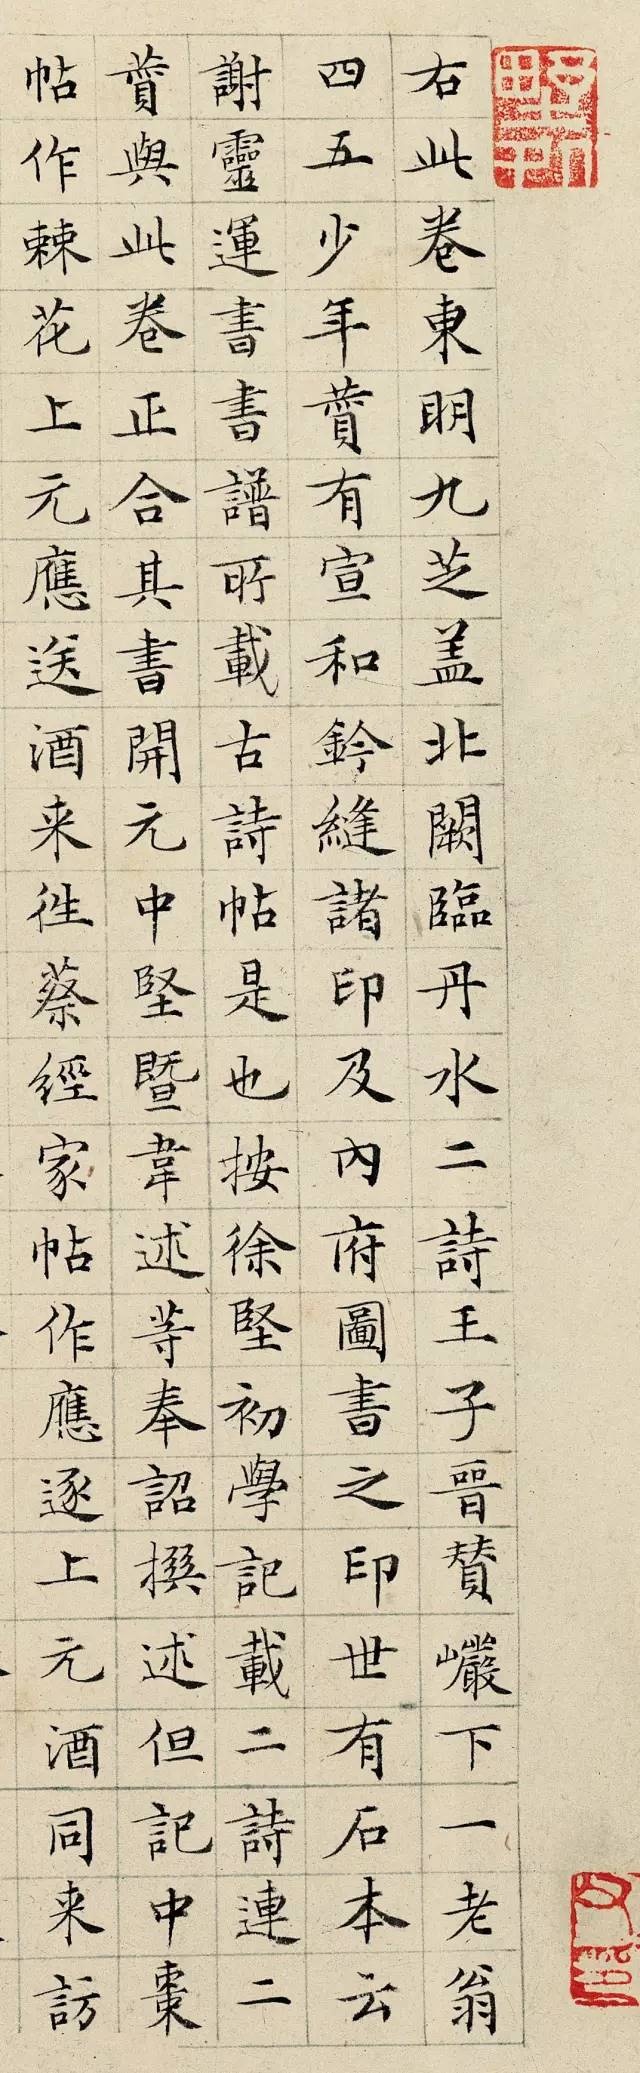 右此卷東明九芝盖北闕臨丹水二詩王子晉贊巗下一老翁
四五少年贊有宣和鈐縫諸印及內府圖書之印世有石本云
謝靈運書書譜所載古詩帖是也按徐堅初學記載二詩連二
贊與此卷正合其書開元中堅暨韋述等奉詔撰述但記中棗
帖作棘花上元應送酒来徃蔡經家帖作應逐上元酒同来訪